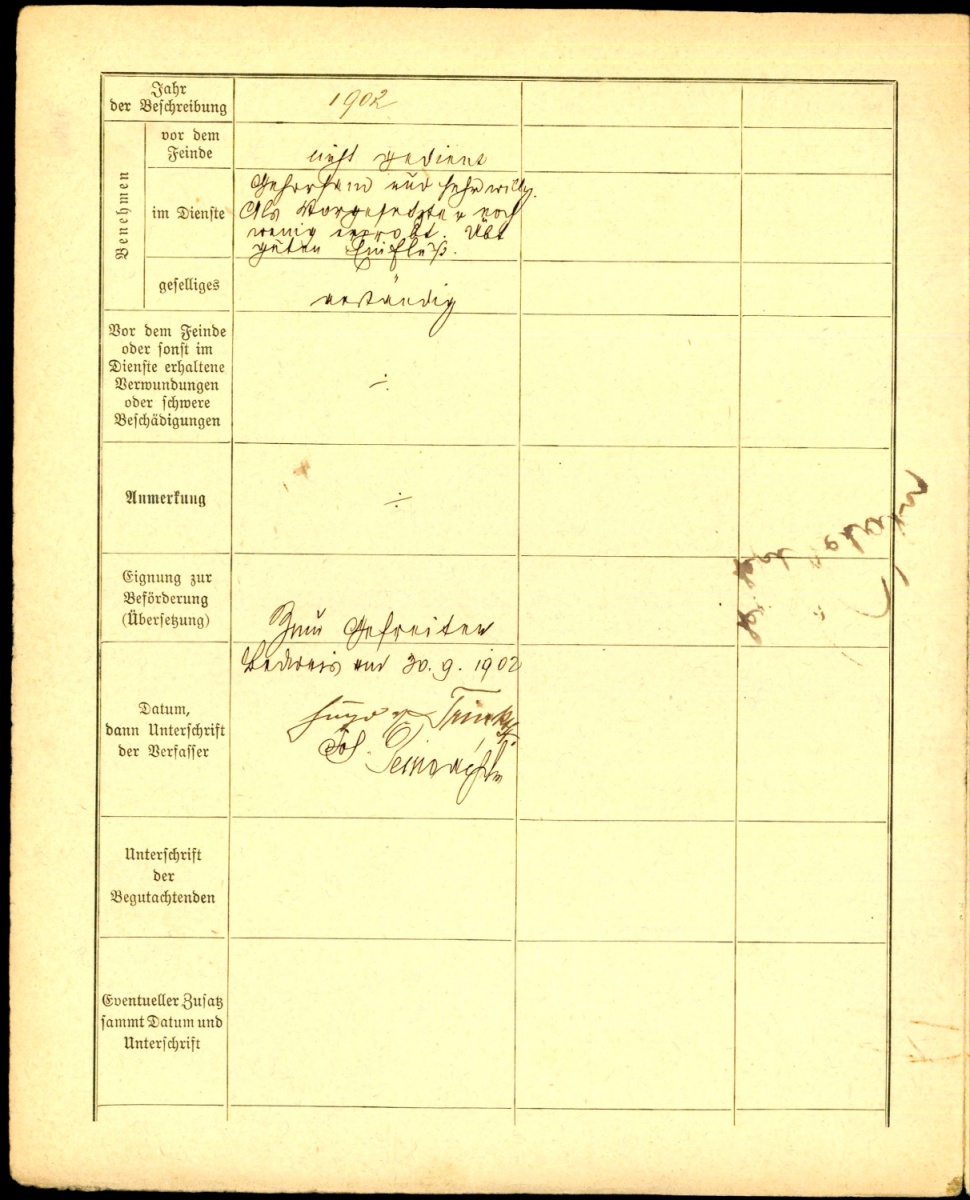 Jahr
der Beschreibung
1902
Benehmen
vor dem
Feinde
nicht gedient
im Dienste
Gehorsam und sehr willig.
Als Vorgesetzter noch
wenig erprobt. Übt
guten Einfluß.
geselliges
anständig
Vor dem Feinde
oder sonst im
Dienste erhaltene
Verwundungen
oder schwere
Beschädigungen
÷
Anmerkung
÷
Eignung zur
Beförderung
(Übersetzung)
Zum Gefreiten
Datum,
dann Unterschrift
der Verfasser
am 30.9.1902
Hugo
Unterschrift
der
Begutachtenden
Eventueller Zusatz
sammt Datum und
Unterschrift